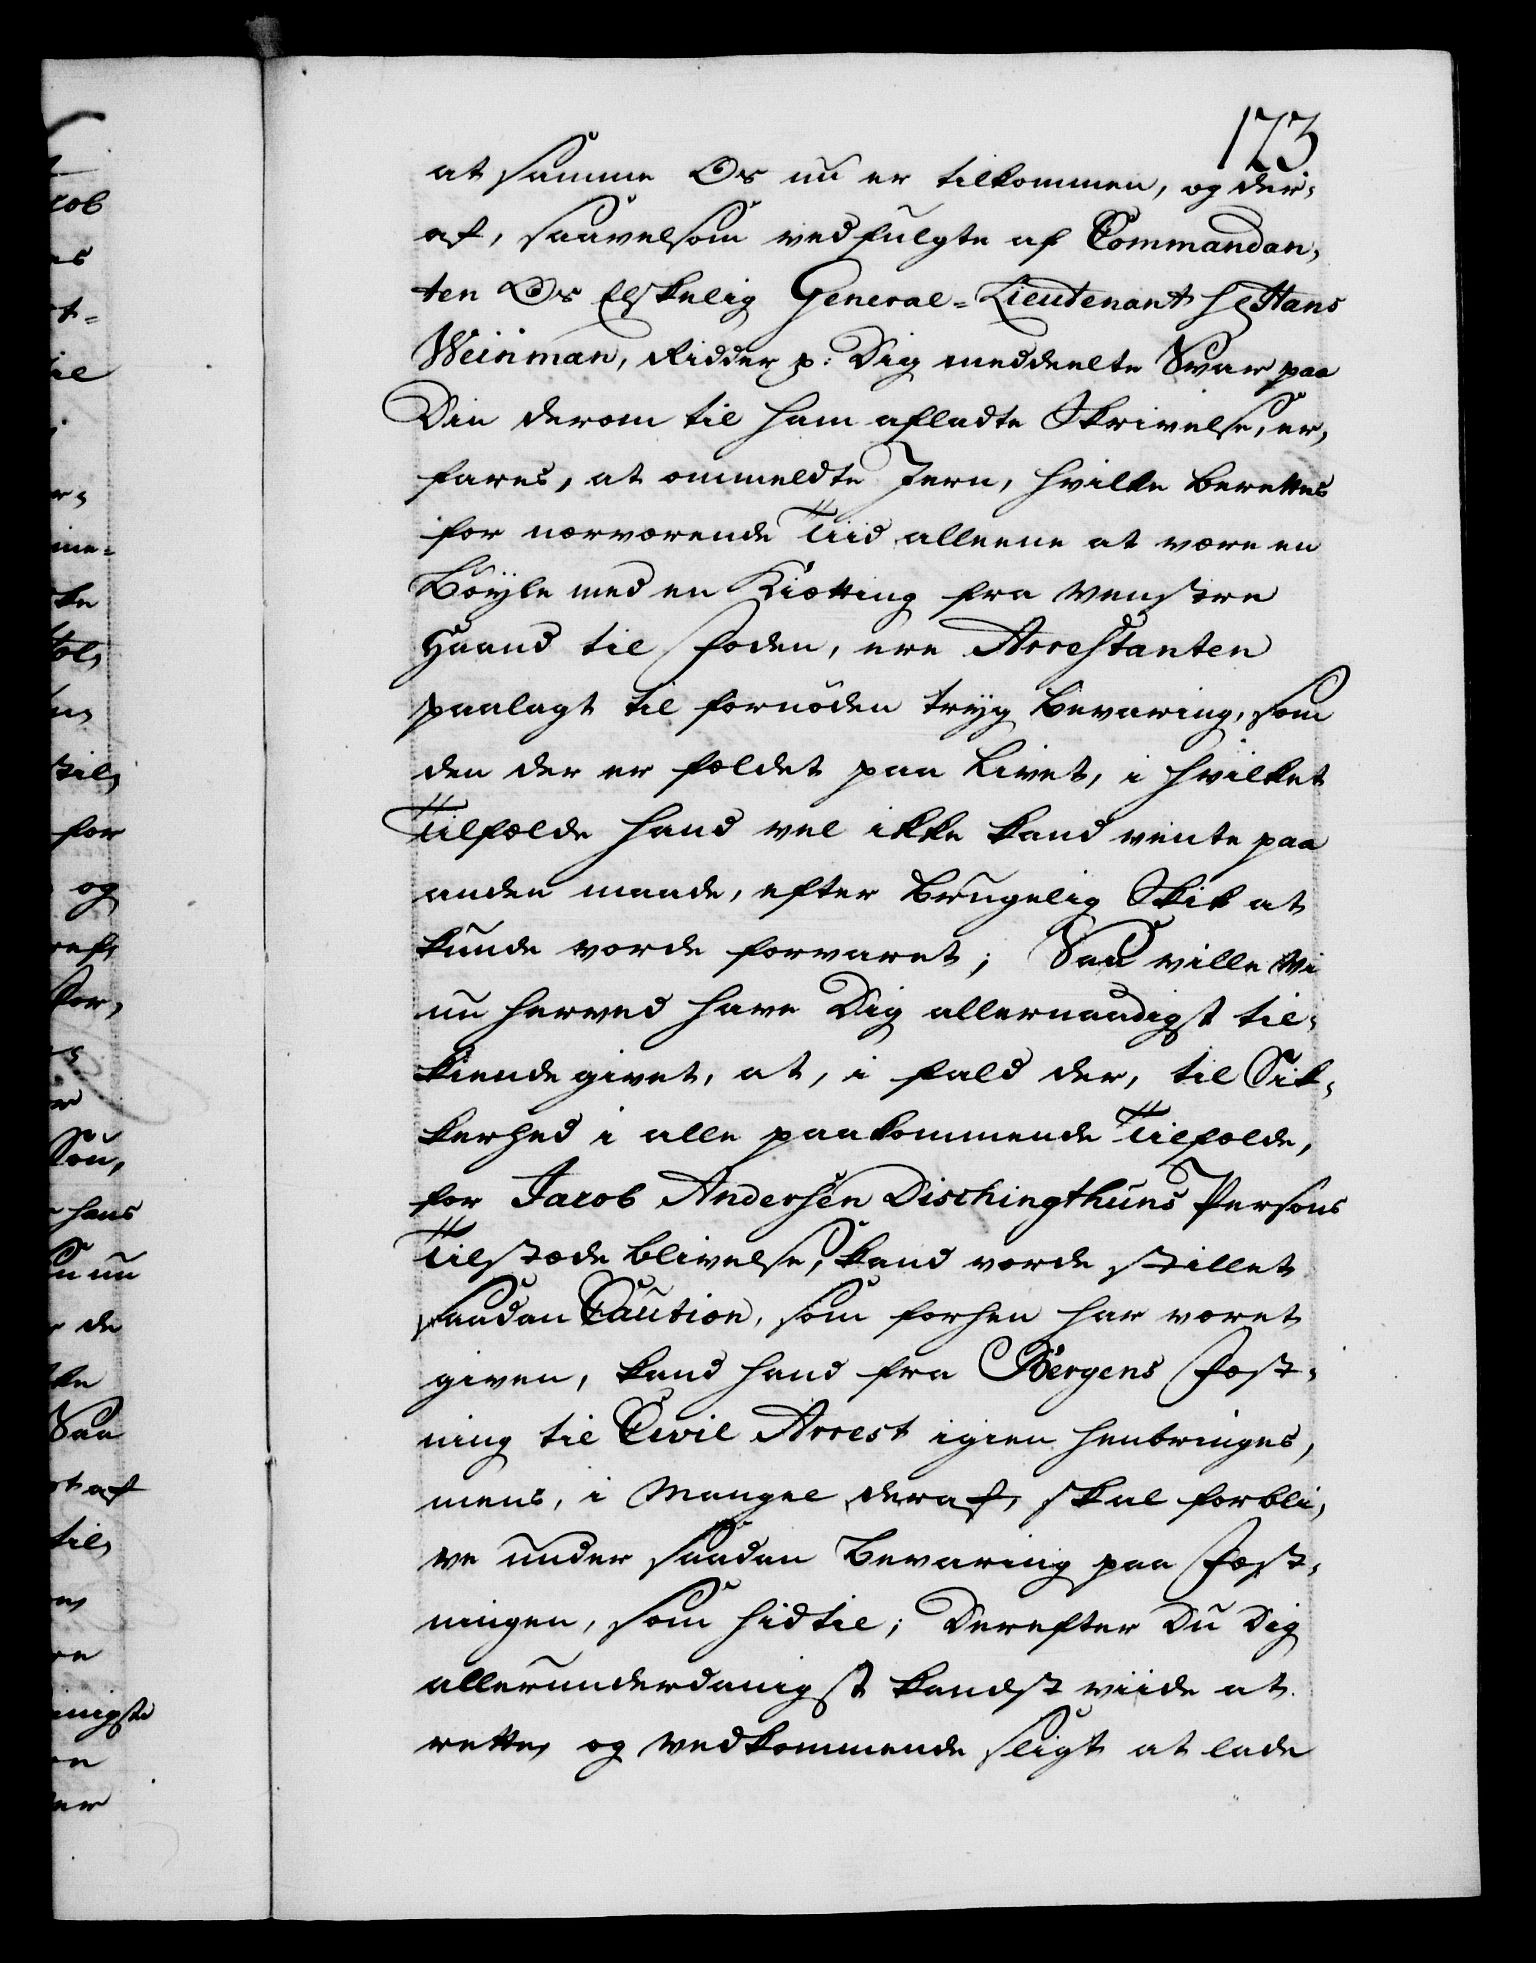 173
at samme Os nu er tilkommen, og der,
af, saavelsom vedfulgte af Commandan,
ten Os Elskelig General-Lieutenant Hr Hans
Weinman, Ridder p: Dig meddeelte Svar paa
Din derom til ham afladte Skrivelse, er,
fares, at ommeldte Jern, hvilke berettes
for nærværende Tiid alleene at være en
Böyle med en Kiætting fra venstre
Haand til Foden, ere Arrestanten
paalagt til fornöden tryg bevaring, som
den der er fældet paa Livet, i hvilket
Tilfælde hand vel ikke kand vente paa
anden maade, efter brugelig Skik at
kunde vorde forvaret; Saa ville Vi
nu herved have Dig allernaadigst til,
kiende givet, at, i fald der, til Sik,
kerhed i alle paakommende Tilfælde,
for Jacob Andersen Dischingthuns Persons
Tilstæde blivelse, kand vorde stillet
saadan Caution, som forhen har været
given, kand hand fra Bergens Fæst,
ning til Civil Arrest igien henbringes,
mens, i Mangel deraf, skal forbli,
ve under saadan bevaring paa Fæst,
ningen, som hidtil; Derefter Du Dig
allerunderdanigst kandst viide at
rette, og vedkommende sligt at lade